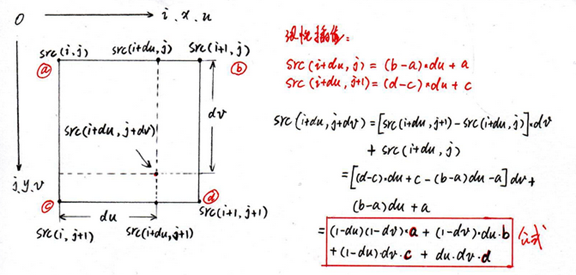 O i.x.u
src(i,j) src(i+du,j) src(i+1,j)
a b
dv
src(i+du,j+dv)
j.y.v
c d
du src(i+1,j+1)
src(i,j+1) src(i+du,j+1)
线性插值:
src(i+du,j) = (b-a)·du + a
src(i+du,j+1) = (d-c)·du + c
src(i+du,j+dv) = [src(i+du,j+1)-src(i+du,j)]·dv
+ src(i+du,j)
= [(d-c)·du+c-(b-a)du-a]dv+
(b-a)du+a
= (1-du)(1-dv)·a + (1-dv)·du·b
+(1-du)dv·c + du·dv·d
公式